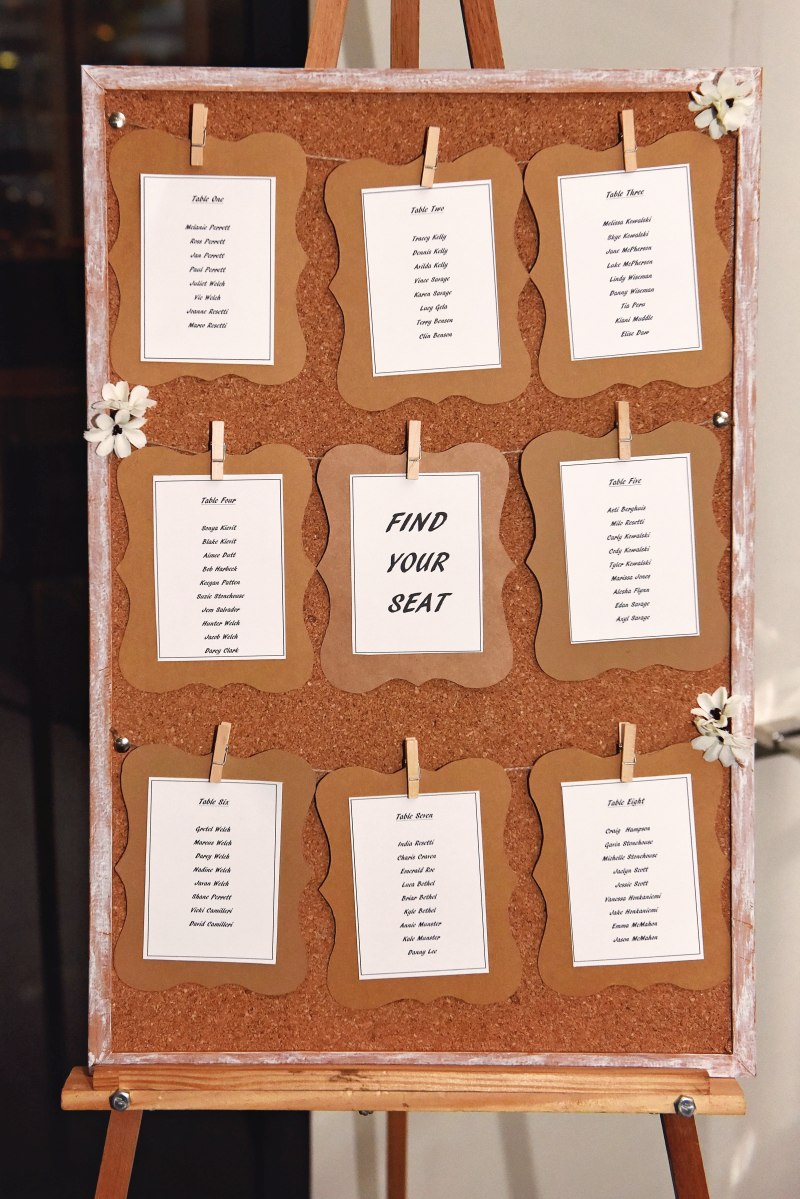 Table One
Melanie Perrett
Ross Perrett
Jan Perrett
Paul Perrett
Juliet Welch
Vic Welch
Joanne Rosetti
Marco Rosetti
Table Two
Tracey Kelly
Dennis Kelly
Arilda Kelly
Vince Savage
Karen Savage
Lucy Gela
Terry Benson
Clin Benson
Table Three
Melissa Kowalski
Skye Kowalski
Jane McPherson
Luke McPherson
Lindy Wiseman
Danny Wiseman
Tia Peru
Kiani Muddle
Elise Darr
Table Four
Sonya Kievit
Blake Kievit
Aimee Dutt
Bob Harbeck
Keegan Patten
Suzie Stonehouse
Jem Salvador
Hunter Welch
Jacob Welch
Darcy Clark
FIND
YOUR
SEAT
Table Five
Asti Berghuis
Milo Rosetti
Carly Kowalski
Cody Kowalski
Tyler Kowalski
Marissa Jones
Alesha Flynn
Edan Savage
Angi Savage
Table Six
Gretel Welch
Marcus Welch
Darcy Welch
Nadine Welch
Javan Welch
Shane Perrett
Vicki Camilleri
David Camilleri
Table Seven
India Rosetti
Charis Craven
Emerald Roe
Luca Bethel
Briar Bethel
Kyle Bethel
Annie Munster
Kale Munster
Danny Lee
Table Eight
Craig Hampson
Gavin Stonehouse
Michelle Stonehouse
Jaclyn Scott
Jessie Scott
Vanessa Honkaniemi
Jake Honkaniemi
Emma McMahon
Jason McMahon